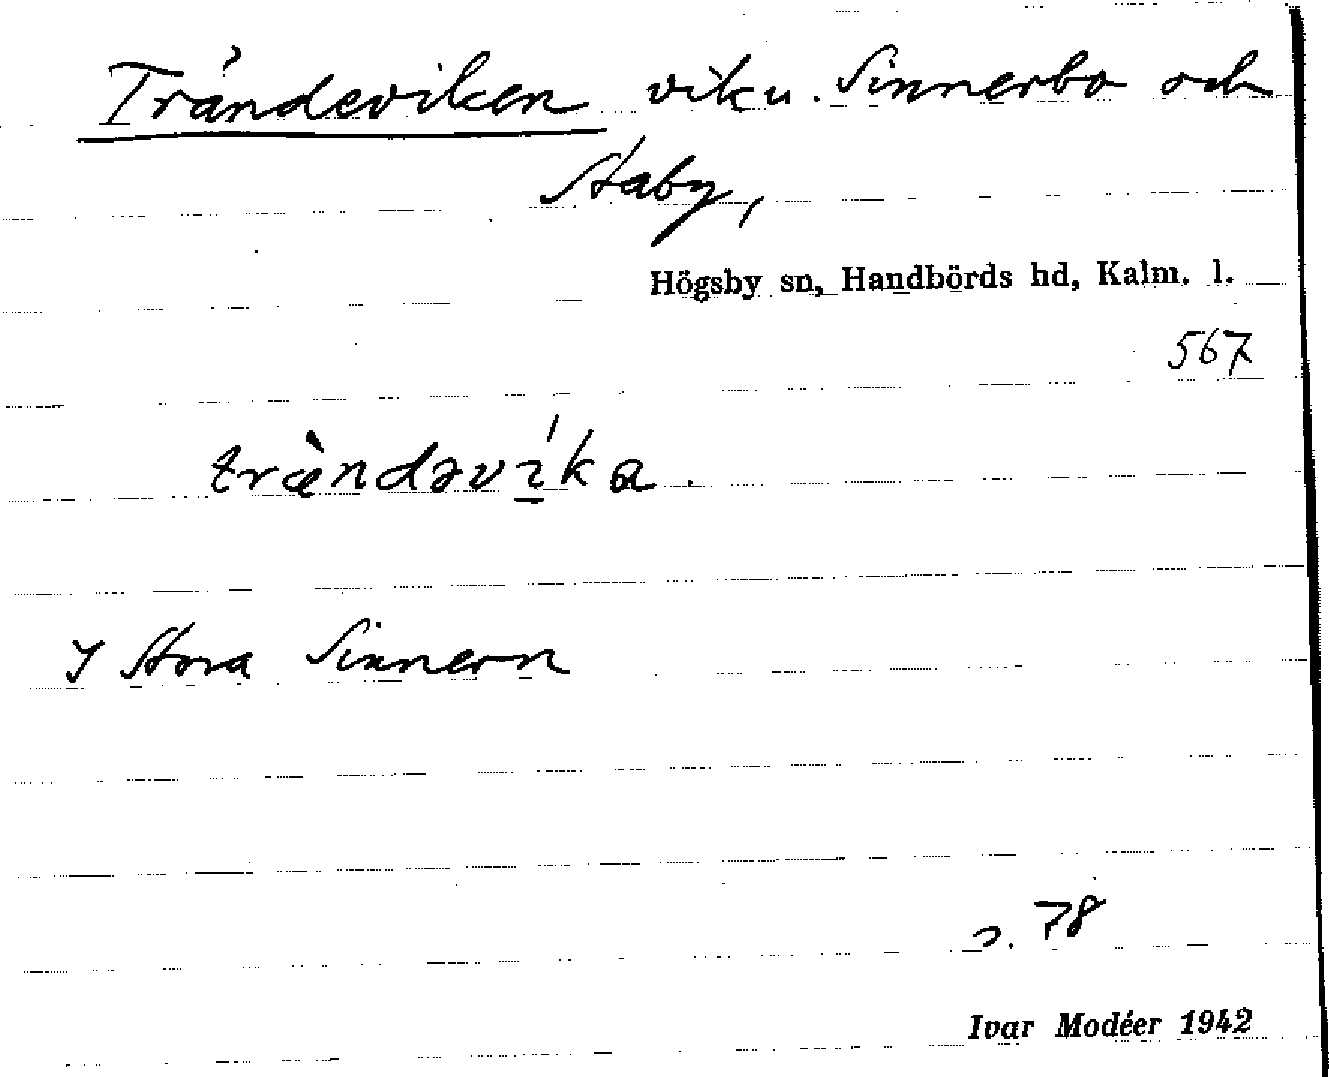 Trändeviken vik u. Sinnerbo och
Staby,
Högsby sn, Handbörds hd, Kalm. l.
567
træ̀ndəví̱ka.
I Stora Sinnern
s. 78
Ivar Modéer 1942